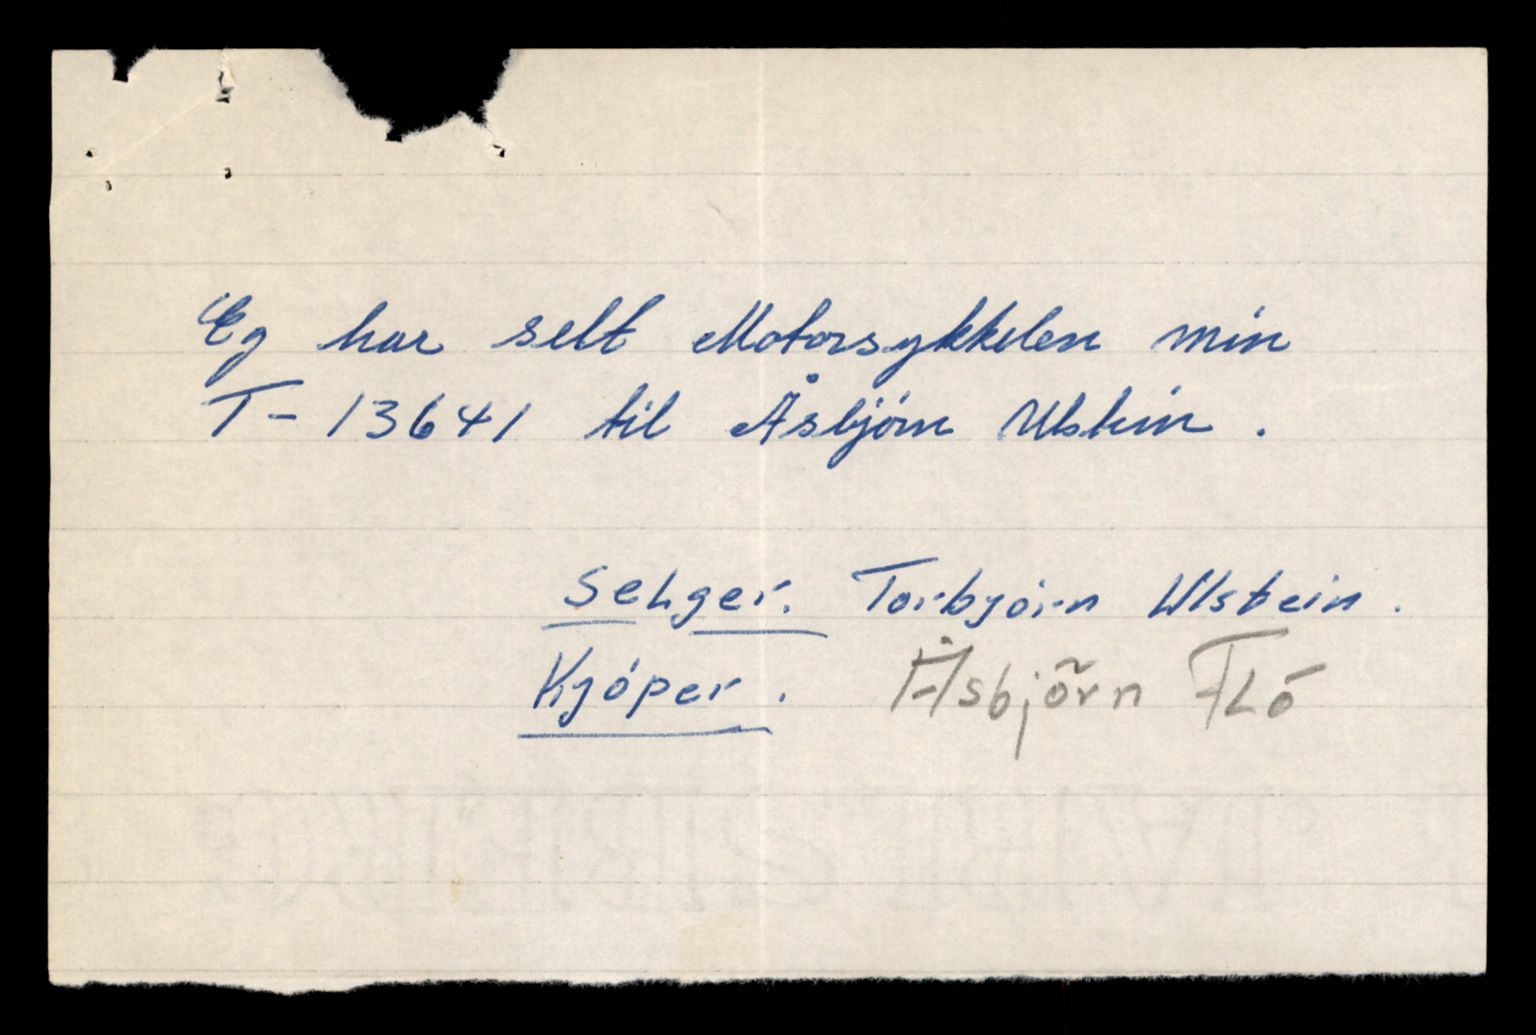 Eg har selt Motorsykkelen min
T-13641 til Åsbjórn Ulstein.
Selger. Torbjórn Ulstein.
Kjóper. Åsbjõrn Fló